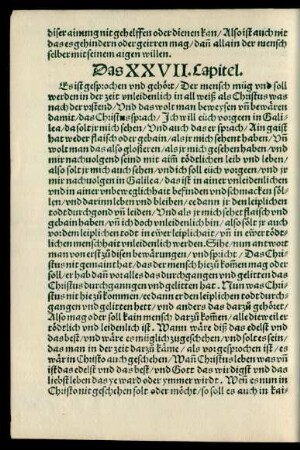 diser ainung nit gehelffen oder dienen kan / Also ist auch nit
das es gehindern oder geirren mag / dañ allain der mensch
selber mit seinem aigen willen.
Das XXVII. Capitel.
Es ist gesprochen vnd gehört / Der mensch müg vnd soll
werden in der zeit vnleidenlich in all weiß als Christus was
nach der vrstend / Vnd das wolt man beweysen vñ bewären
damit / das Christus sprach / Ich will euch vorgeen in Gali-
lea / da solt jr mich sehen / Vnd auch das er sprach / Ain gaist
hat weder flaisch oder gebain / als jr mich sehent haben / Vñ
wolt man das also glosieren / als jr mich gesehen haben / vnd
mir nachuolgend seind mit aim̃ tödtlichen leib vnd leben /
also solt jr mich auch sehen / vnd ich soll euch vorgeen / vnd jr
mir nachuolgen in Galilea / das ist in ainer vnleidenlichen
vnd in ainer vnbeweglichhait befinden vnd schmacken söl-
len / vnd darinn leben vnd bleiben / ee dann jr den leiplichen
todt durchgond vñ leiden / Vnd als jr mich sehet flaisch vnd
gebain haben / vñ ich doch vnleidenlich bin / also sölt jr auch
vor dem leiplichen todt in ewer leiplichait / vñ in ewer tödtli-
chen menschhait vnleidenlich werden. Sihe / nun antwort
man von erst zů disen bewärungen / vnd spricht / Das Chri-
stus nit gemaint hat / das der mensch hie zů kom̃en mag oder
soll / er hab dañ vor alles das durchgangen vnd gelitten das
Christus durchganngen vnd gelitten hat. Nun was Chri-
stus nit hie zů kom̃en / ee dann er den leiplichen todt durch-
gangen vnd gelitten hett / vnd anders das darzů gehöret /
Also mag oder soll kain mensch darzů kom̃en / alle dieweil er
tödtlich vnd leidenlich ist. Wann wäre diß das edelst vnd
das best / vnd wäre es müglich zů geschehen / vnd solt es sein /
das man in der zeit darzů käme / als vorgesprochen ist / es
wär in Christo auch geschehen / Wañ Christus leben was vñ
ist das edelst vnd das best / vnd Gott das wirdigst vnd das
liebst leben das ye ward oder ymmer wirdt. Weñ es nun in
Christo nit geschehen solt oder möcht / so soll es auch in kai-